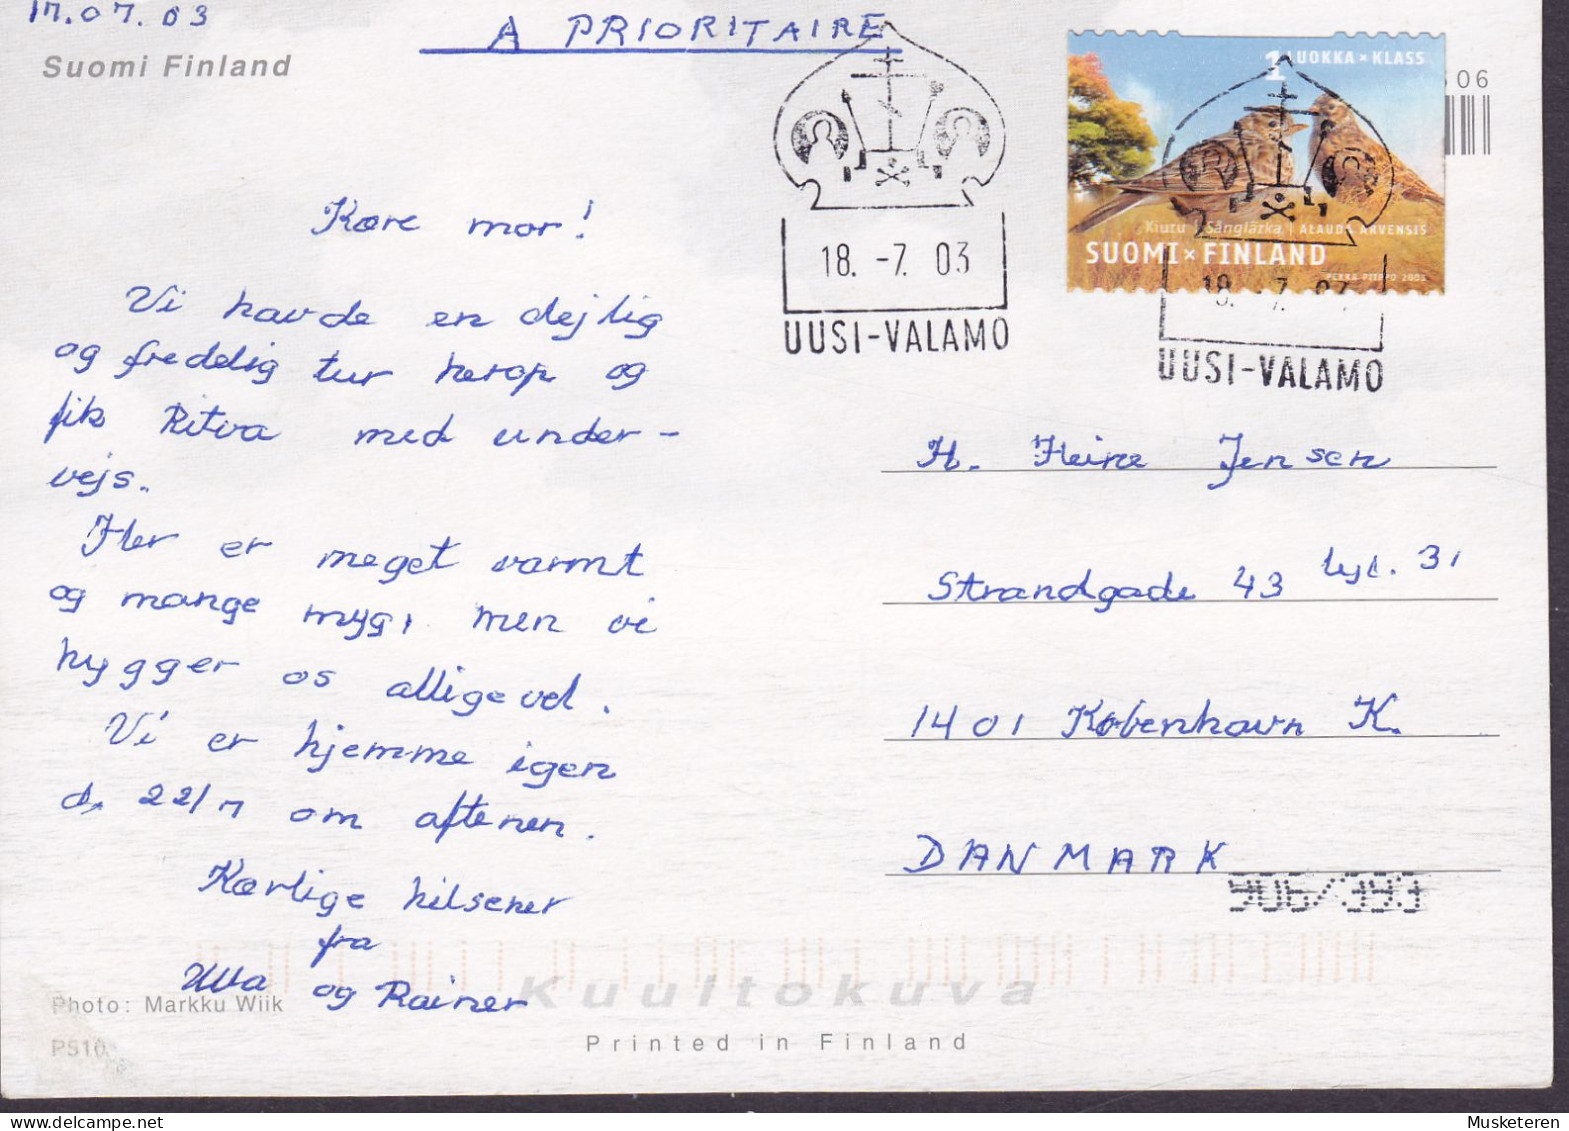 17.07.03
A PRIORITAIRE
Suomi Finland
1 LUOKKA × KLASS
06
Kiuru Sånglärka | ALAUDA ARVENSIS
SUOMI × FINLAND
PEKKA PIIPPO 2003
18. -7. 03
UUSI-VALAMO
18. -7. 03
UUSI-VALAMO
Kære mor!
Vi havde en dejlig
og fredelig tur herop og
fik Ritva med under-
vejs.
Her er meget varmt
og mange myg, men vi
hygger os alligevel.
Vi er hjemme igen
d. 22/7 om aftenen.
Kærlige hilsener
fra
Ulla og Rainer
H. Heine Jensen
Strandgade 43 lejl. 31
1401 København K.
DANMARK
906/393
Photo: Markku Wiik
Kuultokuva
PS10
Printed in Finland
Musketeren